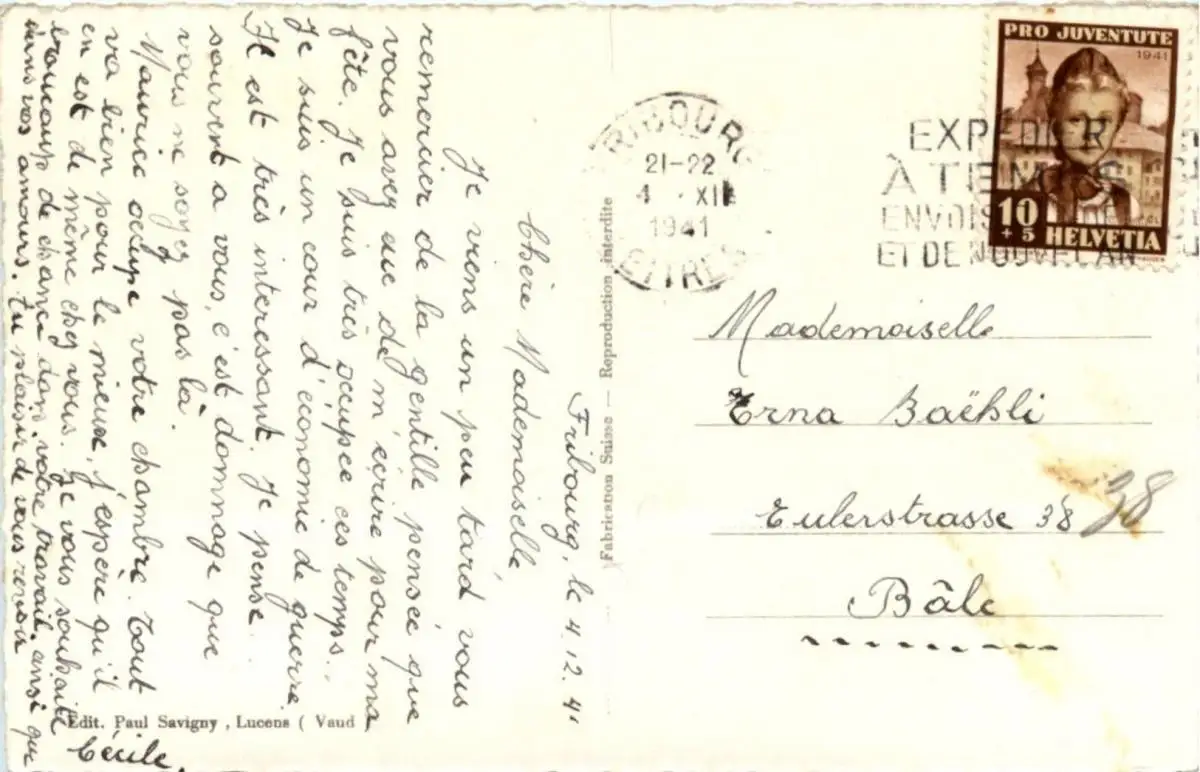 Fribourg, le 4.12.41
Chère Mademoiselle,
Je viens un peu tard, vous
remercier de la gentille pensée que
vous avez eue de m'écrire pour ma
fête. Je suis très occupée ces temps..
Je suis un cour d'économie de guerre
Il est très interessant. Je pense
souvent a vous, c'est dommage que
vous ne soyez pas là.
Maurice occupe votre chambre. Tout
va bien pour le mieux, j'espère qu'il
en est de même chez vous. Je vous souhaite
beaucoup de chance dans votre travail. ainsi que
dans vos amours. Au plaisir de vous revoir
Cécile,
Edit. Paul Savigny, Lucens ( Vaud )
Fabrication Suisse — Reproduction interdite
FRIBOURG
21-22
4 . XII
1941
LETTRES
EXPÉDIER
À TEMPS
ENVOIS DE
ET DE NOUVEL AN
PRO JUVENTUTE
1941
10
+ 5
HELVETIA
Mademoiselle
Erna Baëhli
Eulerstrasse 38 38
Bâle